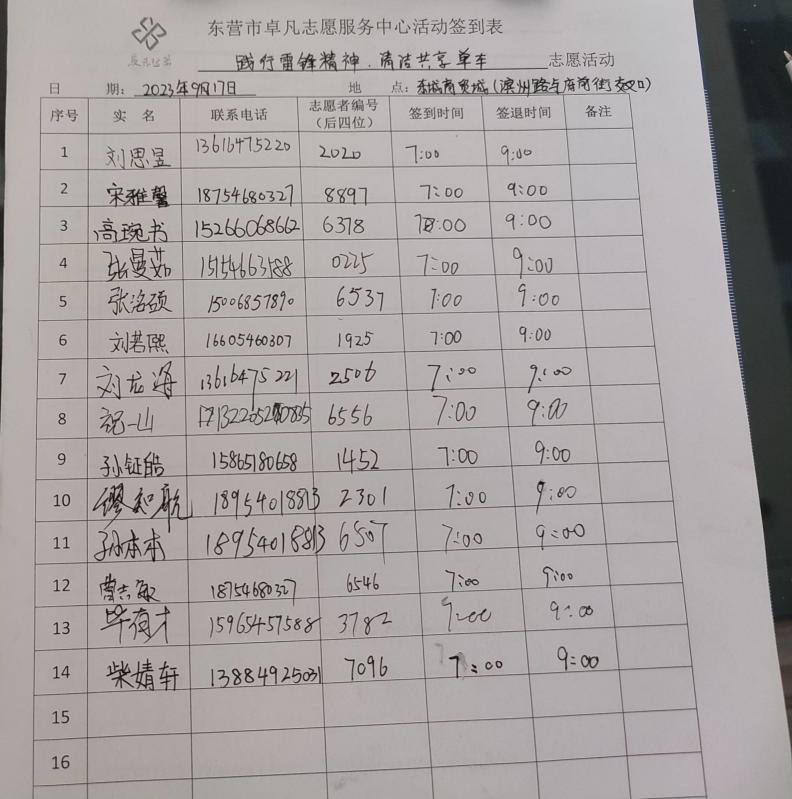 东营市卓凡志愿服务中心活动签到表
践行雷锋精神.清洁共享单车 志愿活动
日 期: 2023年9月17日 地 点: 东城商贸城(滨州路与府前街交叉口)
序号 实 名 联系电话 志愿者编号(后四位) 签到时间 签退时间 备注
1 刘思昱 13616475220 2020 7:00 9:00
2 宋雅馨 18754680327 8897 7:00 9:00
3 高琬书 15266068662 6378 7:00 9:00
4 张曼茹 15154663588 0225 7:00 9:00
5 张洺硕 15006857890 6537 7:00 9:00
6 刘若熙 16605460307 1925 7:00 9:00
7 刘龙海 13616475221 2506 7:00 9:00
8 祝一山 6556 7:00 9:00
9 孙钲皓 15865780658 1452 7:00 9:00
10 缪知航 18954018813 2301 7:00 9:00
11 孙本本 18954018813 6507 7:00 9:00
12 曹志敏 18754680327 6546 7:00 9:00
13 毕有才 15965457588 3782 9:00 9:00
14 柴婧轩 13884925031 7096 7:00 9:00
15
16